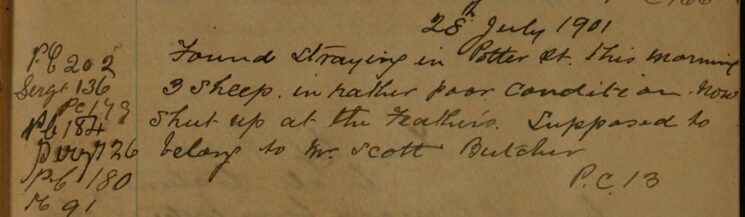 28th July 1901
PC 202
Sergt 136
PC 179
PC 184
Sergt 26
PC 180
91
Found straying in Potter St. this morning
3 sheep. in rather poor condition. now
shut up at the Feathers. Supposed to
belong to Mr Scott Butcher
P.C. 13